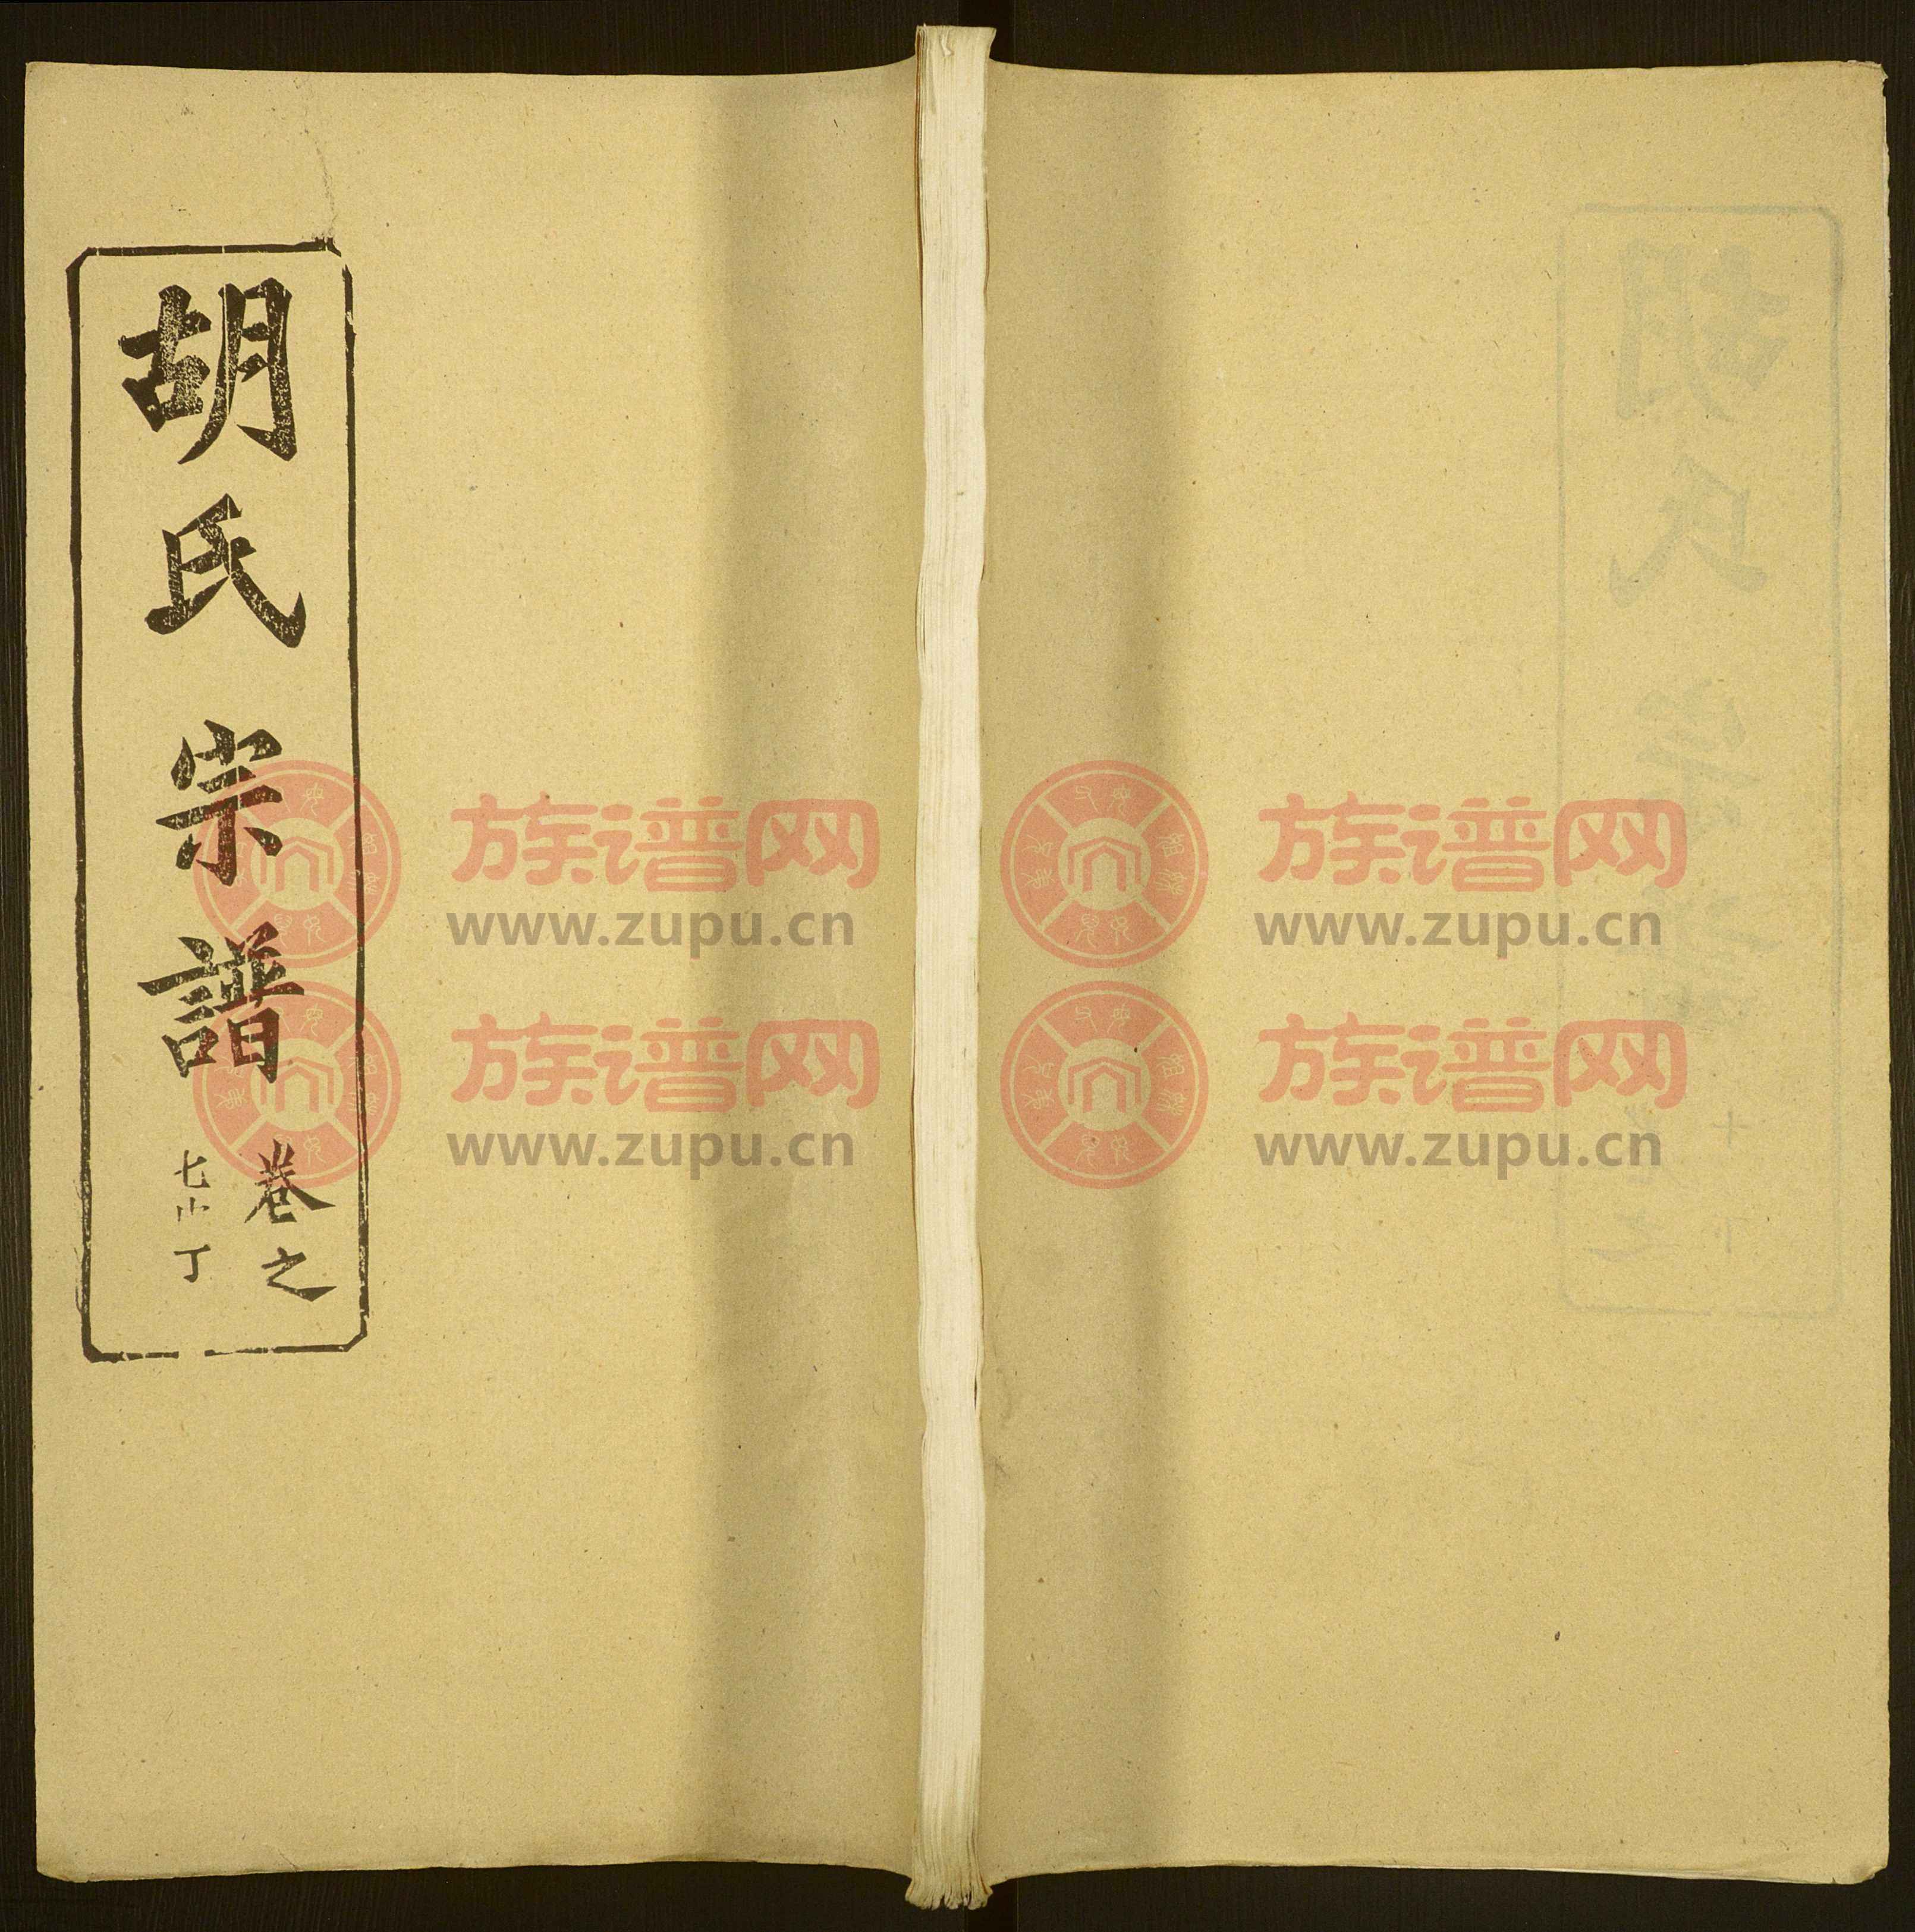 胡氏宗譜
卷之
七
丁
族谱网
www.zupu.cn
族谱网
www.zupu.cn
族谱网
www.zupu.cn
族谱网
www.zupu.cn